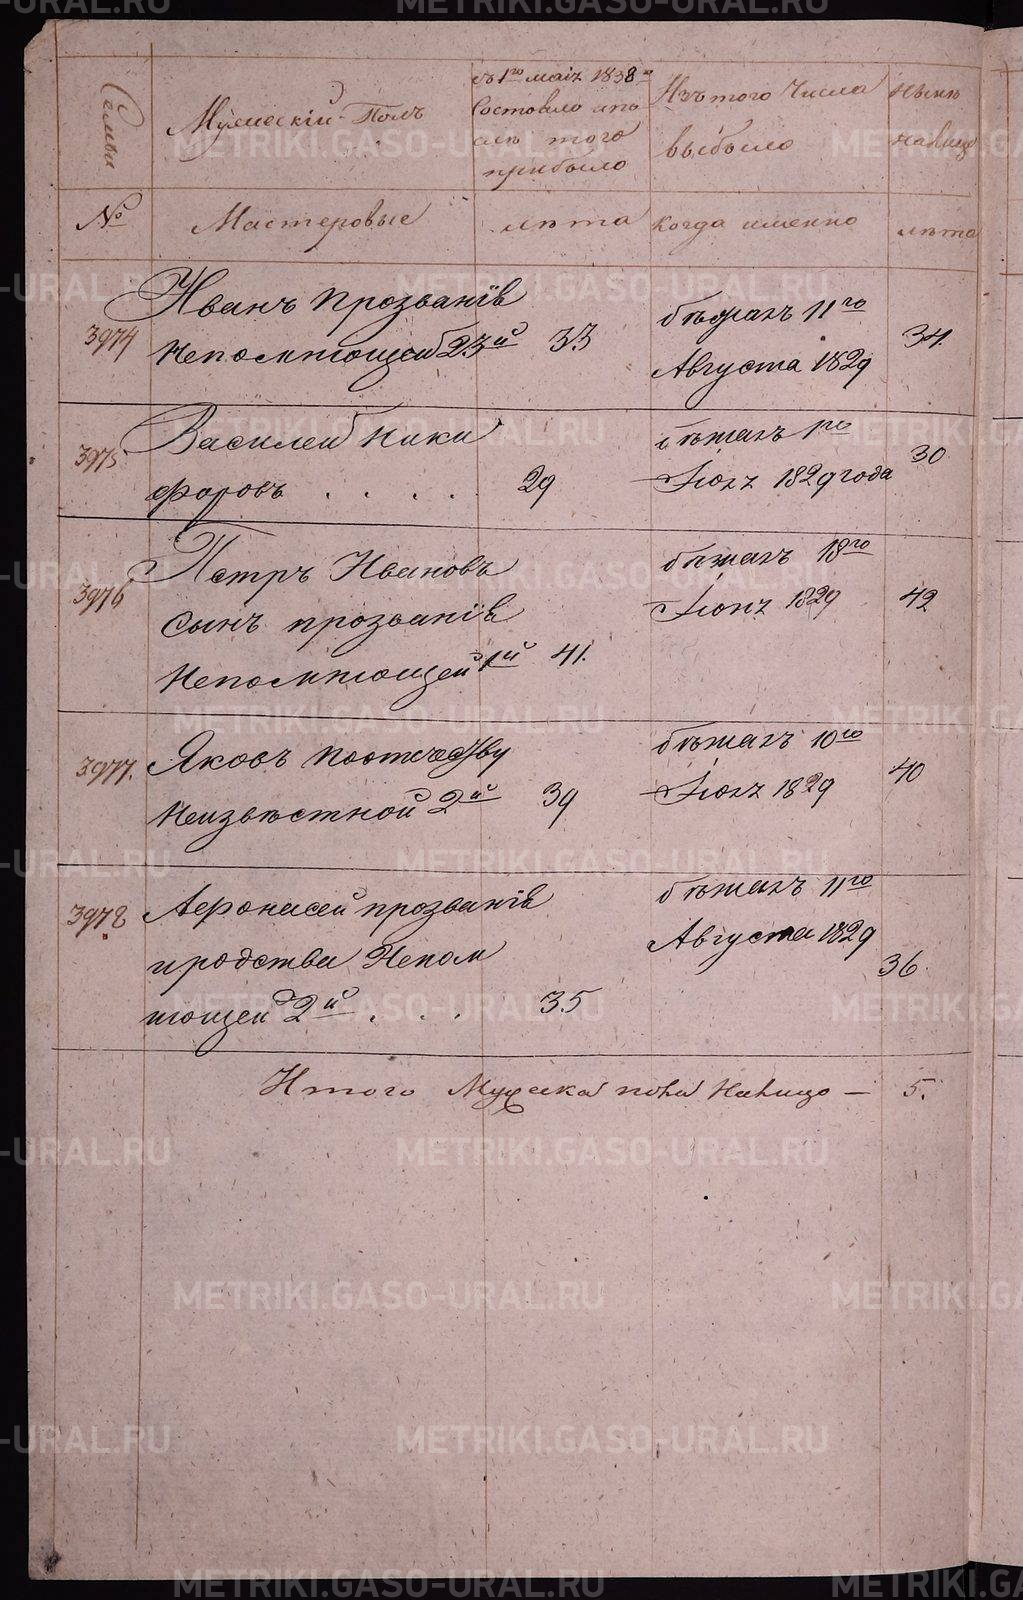 Семьи
Мужескій Полъ
съ 1го маія 1838го
Состояло и по
слѣ того
прибыло
Изъ того Числа
выбыло
Нынѣ
налицо
№
Мастеровые
лѣта
когда именно
лѣта
3974
Иванъ прозваніѣ
Непомнющей 23й 33
бѣжалъ 11го
Августа 1829
34.
3975
Василей Ники
форовъ . . . . 29
бѣжалъ 1го
Іюля 1829 года
30
3976
Петръ Ивановъ
сынъ прозваніѣ
Непомнющей 1й 41.
бѣжалъ 18го
Іюня 1829
42
3977.
Яковъ поотечеству
Неизвѣстной 2й 39
бѣжалъ 10го
Іюля 1829
40
3978
Афонасей прозваніѣ
иродства Непом
нющей 2й . . . 35
бѣжалъ 11го
Августа 1829
36.
Итого Мужеска пола Налицо — 5.
METRIKI.GASO-URAL.RU